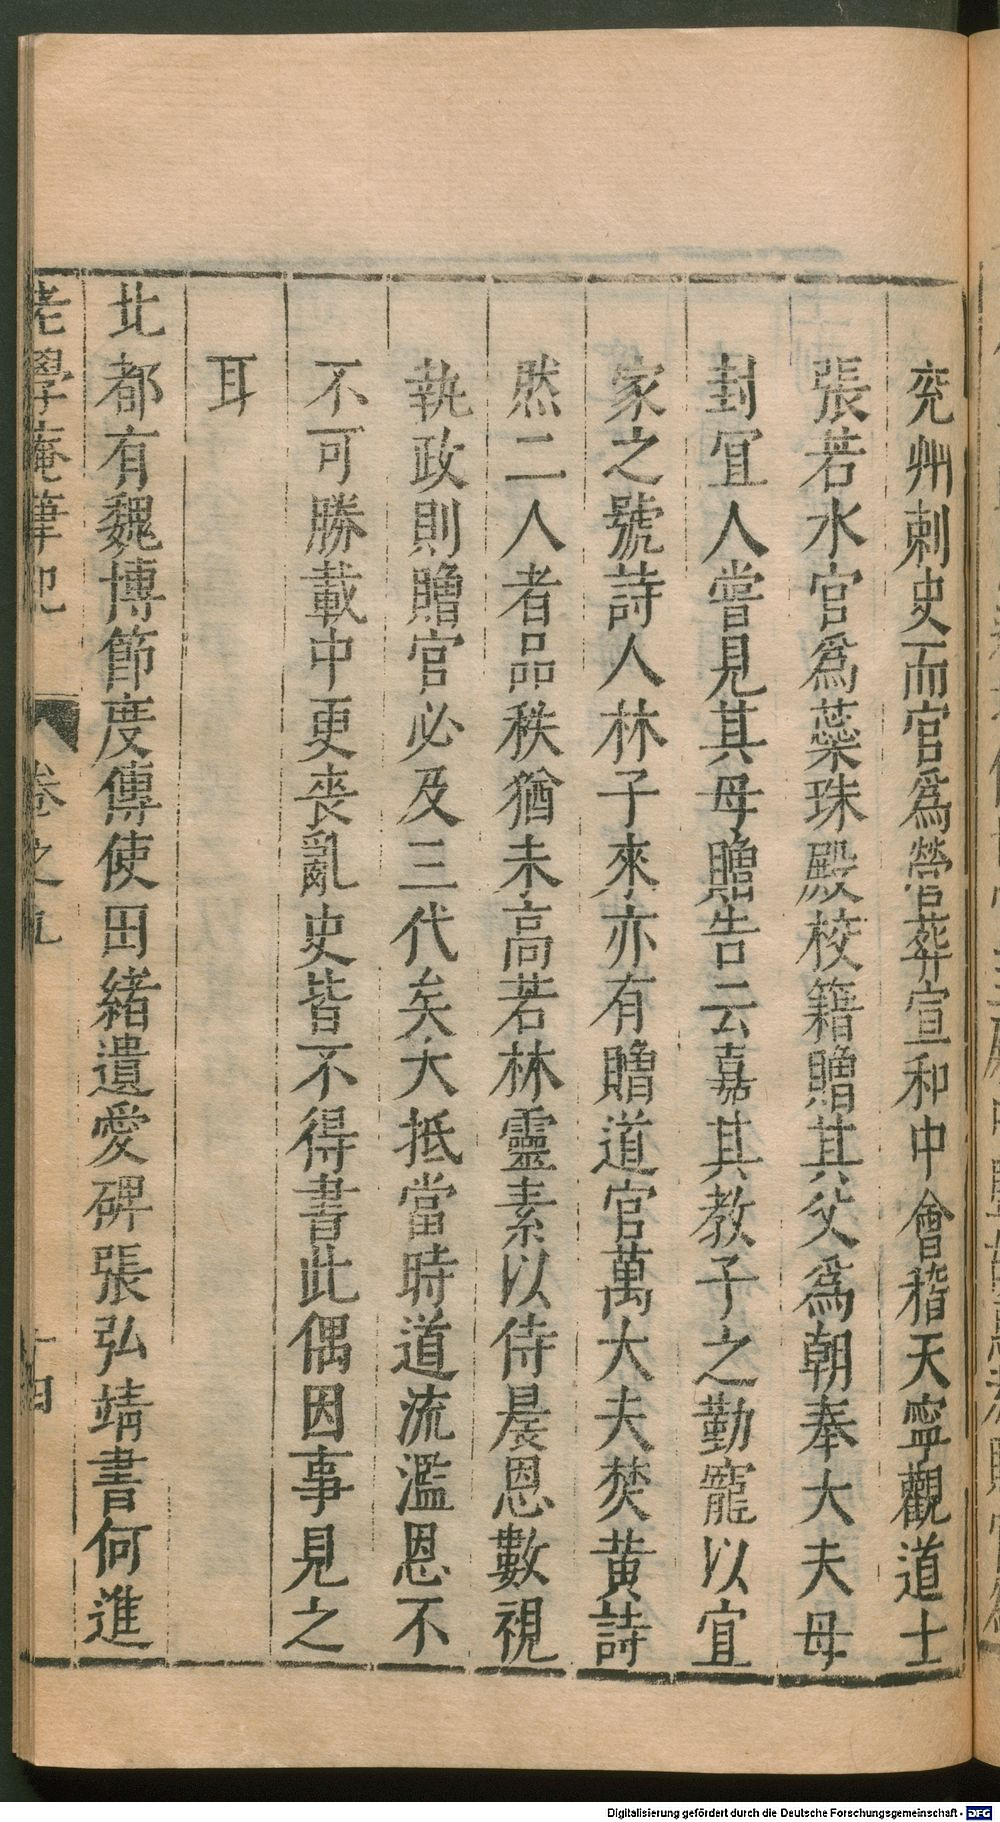 兖州刺史而官爲營葬宣和中會稽天寧觀道士
張若水官爲蘂珠殿校籍贈其父爲朝奉大夫母
封冝人嘗見其母贈告云嘉其教子之勤寵以冝
家之號詩人林子來亦有贈道官萬大夫焚黃詩
然二人者品秩猶未高若林靈素以侍晨恩數視
執政則贈官必及三代矣大抵當時道流濫恩不
不可勝載中更喪亂史皆不得書此偶因事見之
耳
北都有魏博節度傳使田緒遺愛碑張弘靖書何進
老學庵筆記 卷之九 十四
Digitalisierung gefördert durch die Deutsche Forschungsgemeinschaft - DFG